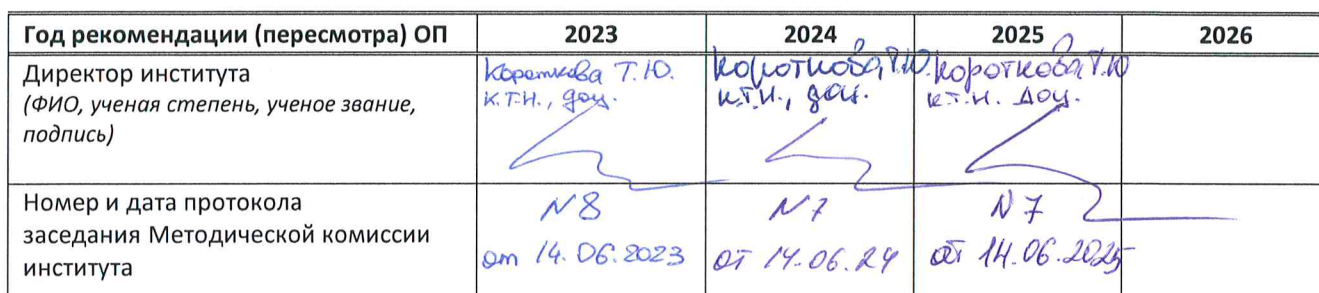 Год рекомендации (пересмотра) ОП 2023 2024 2025 2026
Директор института
(ФИО, ученая степень, ученое звание,
подпись)
Короткова Т.Ю.
к.т.н., доц.
Короткова Т.Ю.
к.т.н., доц.
Короткова Т.Ю
к.т.н. доц.
Номер и дата протокола
заседания Методической комиссии
института
N 8
от 14.06.2023
N 7
от 14.06.24
N 7
от 14.06.2025